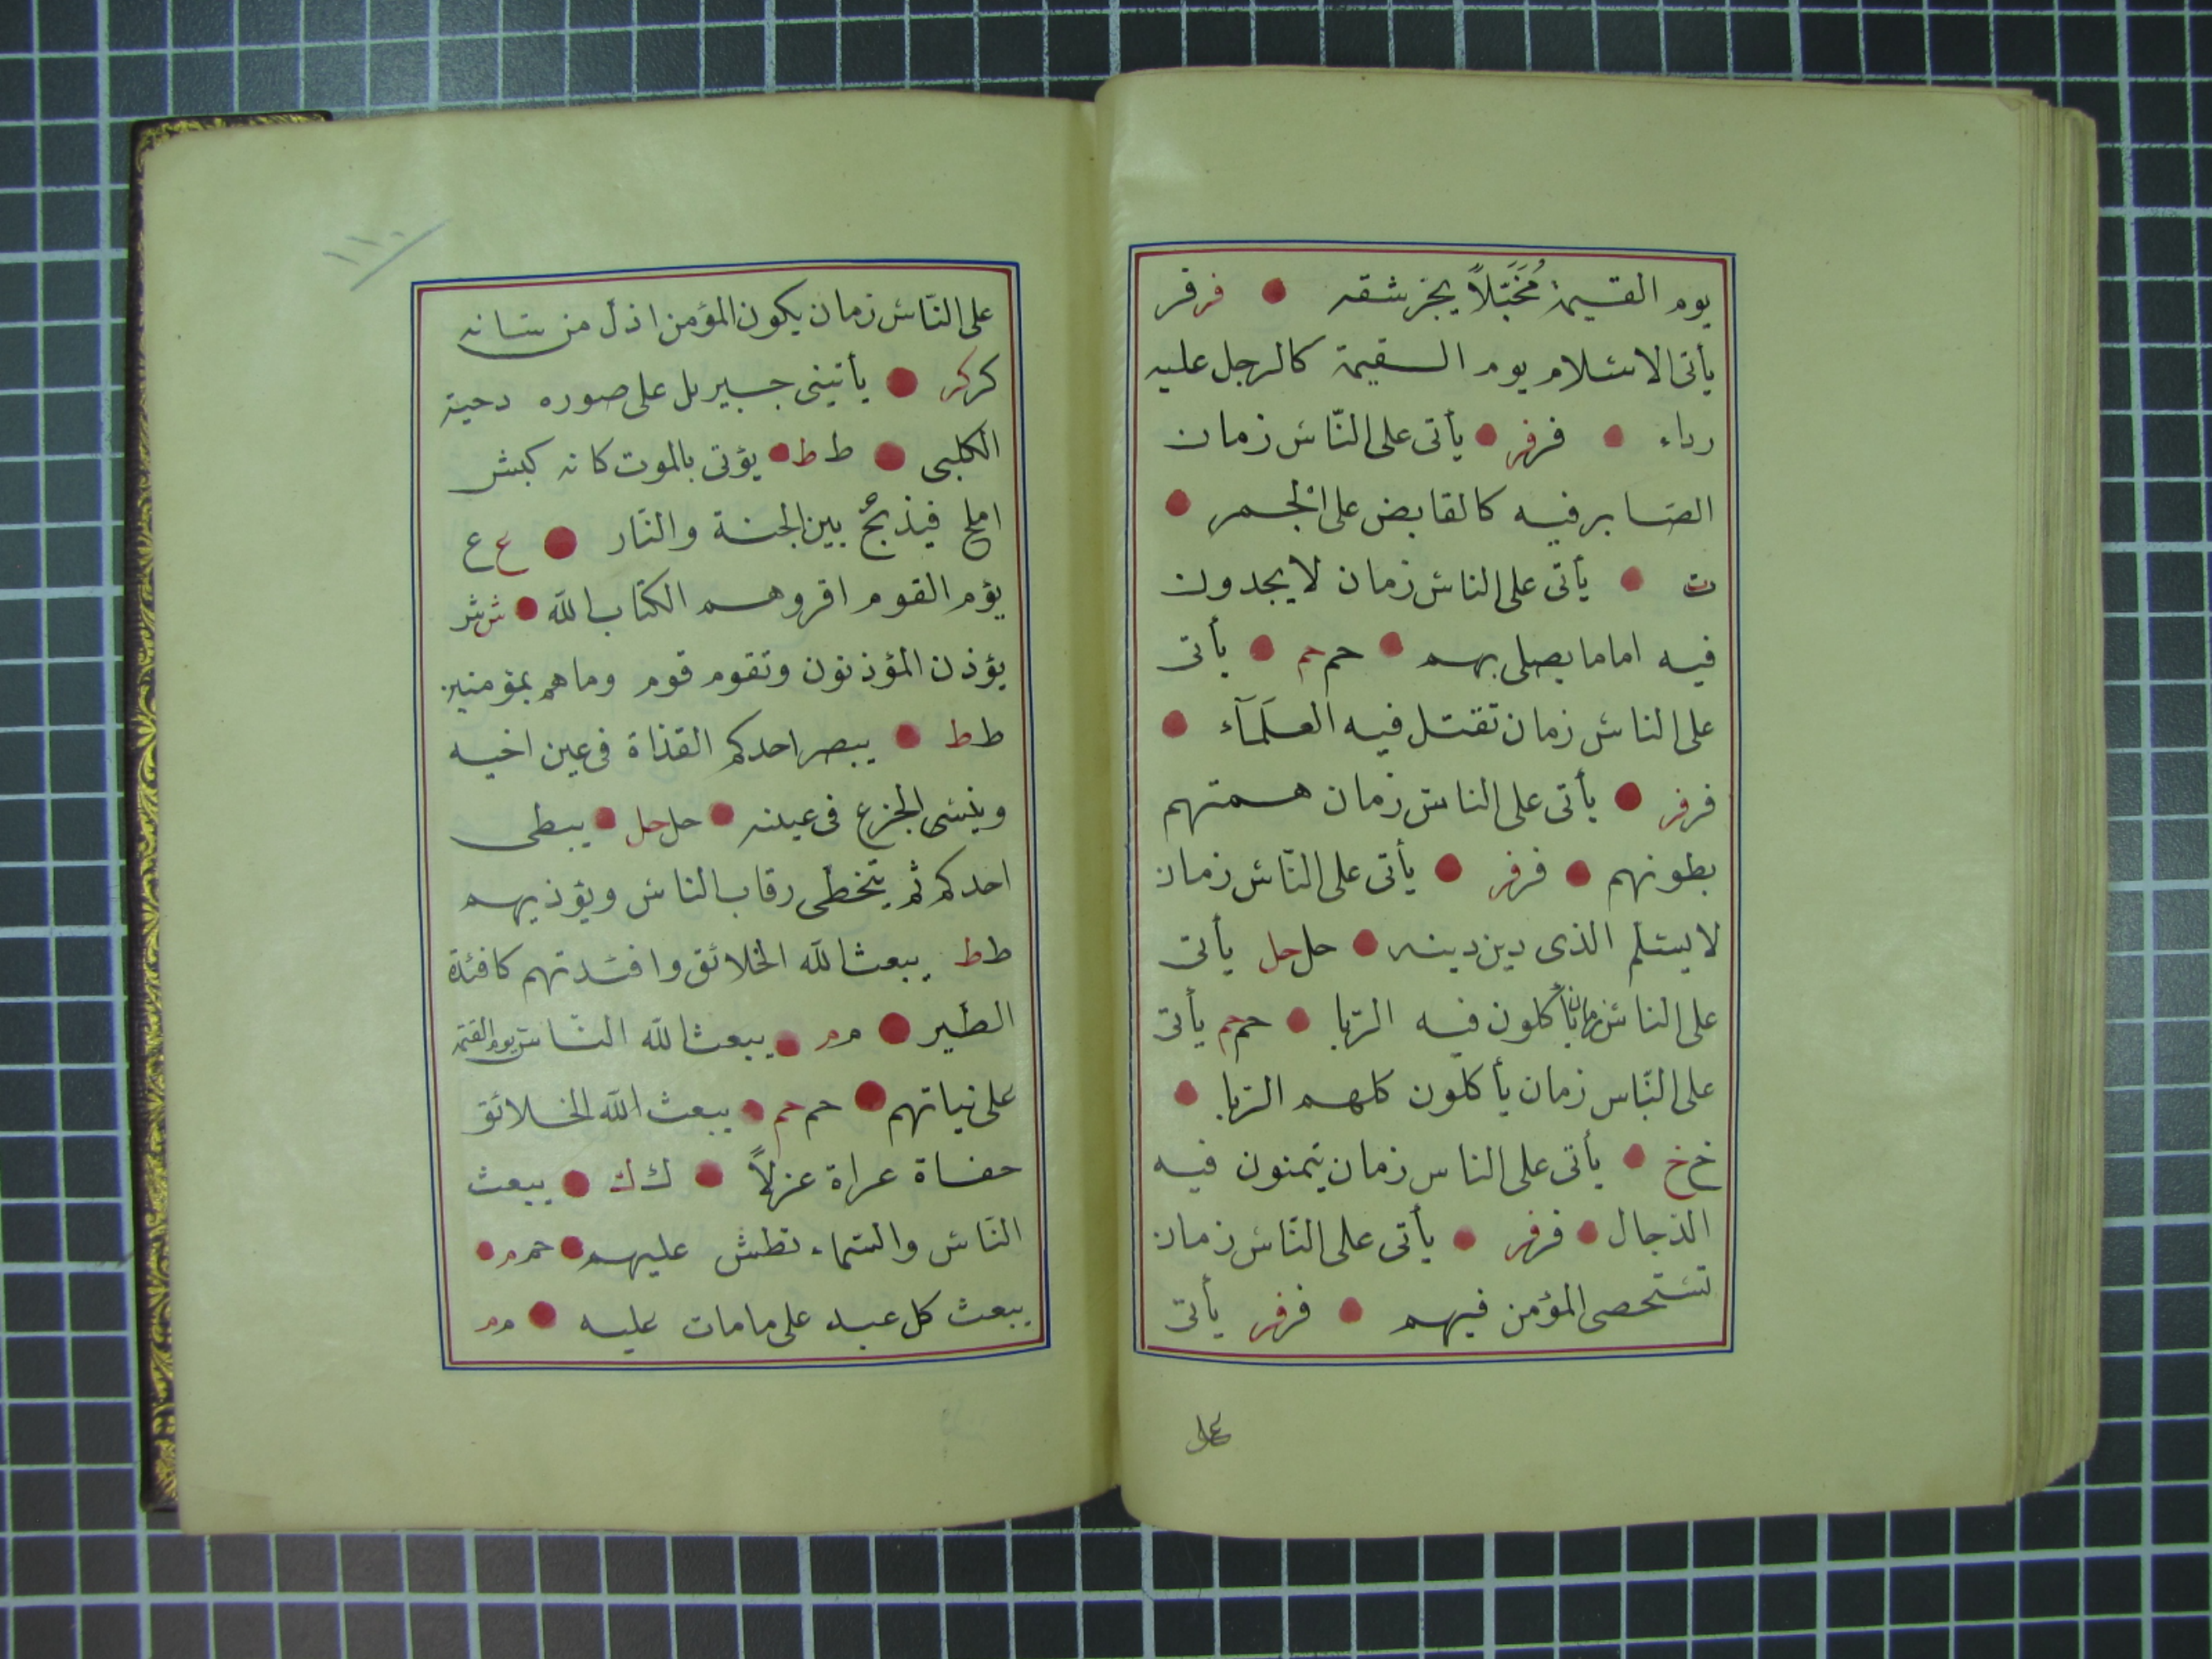 يوم القيمة مُخَبَّلاً يجز شقه ● فر فر
يأتى الاسلام يوم السقيمة كالرجل عليه
رداء ● فر فر ● يأتى على النّاس زمان
الصّابر فيه كالقابض على الجمر ●
ت ● يأتى على الناس زمان لا يجدون
فيه اماما يصلى بهم ● حم حم ● يأتى
على الناس زمان تقتل فيه العلَمَآء ●
فر فر ● يأتى على الناس زمان همتهم
بطونهم ● فر فر ● يأتى على النّاس زمان
لا يسلم الذى دين دينه ● حل حل يأتى
على الناس زمان يأكلون فيه الربا ● حم حم يأتى
على النّاس زمان يأكلون كلهم الربا ●
خ خ ● يأتى على الناس زمان يتمنون فيه
الدجال ● فر فر ● يأتى على النّاس زمان
تستحصى المؤمن فيهم ● فر فر يأتى
على
١١٠
على النّاس زمان يكون المؤمن اذل من شانه
كر كر ● يأتينى جبيريل على صوره دحية
الكلبى ● ط ط ● يؤتى بالموت كانه كبش
املح فيذبحُ بين الجنة والنّار ● ع ع
يؤم القوم اقروهم الكتاب الله ● ش ش
يؤذن المؤذنون وتقوم قوم وماهم بمؤمنين
ط ط ● يبصر احدكم القذاة فى عين اخيه
وينسى الجزع فى عينه ● حل حل ● يبطى
احدكم ثم يتخطى رقاب الناس ويؤذيهم
ط ط يبعث الله الخلائق وافئدتهم كافئدة
الطير ● م م ● يبعث الله النّاس يوم القيمة
على نياتهم ● حم حم ● يبعث الله الخلائق
حفاة عراة عزلاً ● ك ك ● يبعث
النّاس والسّماء تطش عليهم ● حم م ●
يبعث كل عبد على مامات عليه ● م م